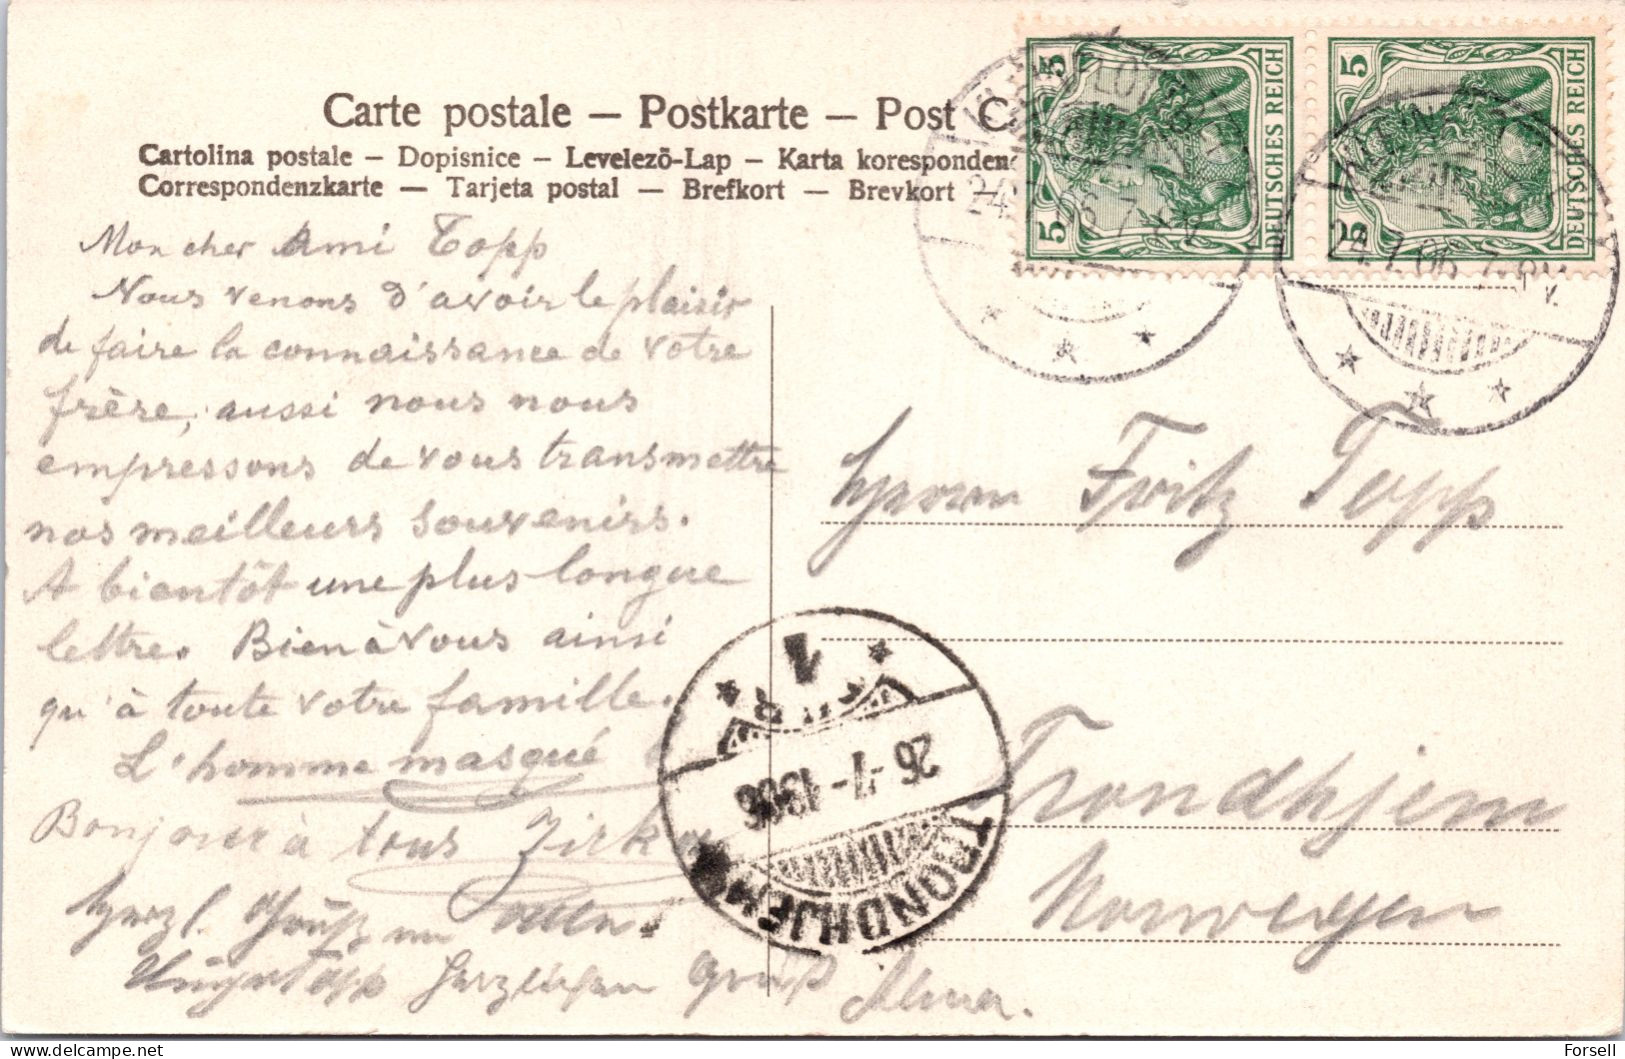 Carte postale — Postkarte — Post C
Cartolina postale – Dopisnice – Levelezō-Lap – Karta korespondenc
Correspondenzkarte — Tarjeta postal — Brefkort — Brevkort
5 DEUTSCHES REICH 5
5 DEUTSCHES REICH 5
24.7.06. 7
24.7.06. 7
Mon cher Ami Topp
Nous venons d'avoir le plaisir
de faire la connaissance de votre
frère, aussi nous nous
empressons de vous transmettre
nos meilleurs souvenirs.
A bientôt une plus longue
lettre. Bien à vous ainsi
qu'à toute votre famille.
L'homme masqué
Bonjour à tous
Herzl. Grüße
Herzlichen Gruß
Herrn Fritz Topp
Trondhjem
Norwegen
TRONDHJEM
26-7-1906
1
delcampe.net
Forsell